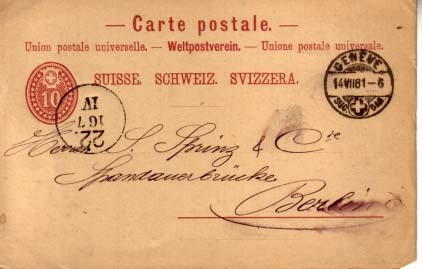 Carte postale.
Union postale universelle. — Weltpostverein. — Unione postale universale.
SUISSE. SCHWEIZ. SVIZZERA.
10
GENÈVE
14 VII 81 – 6
22.
16 7
IV
Herren S. Prinz & Cie
Spandauerbrücke
Berlin